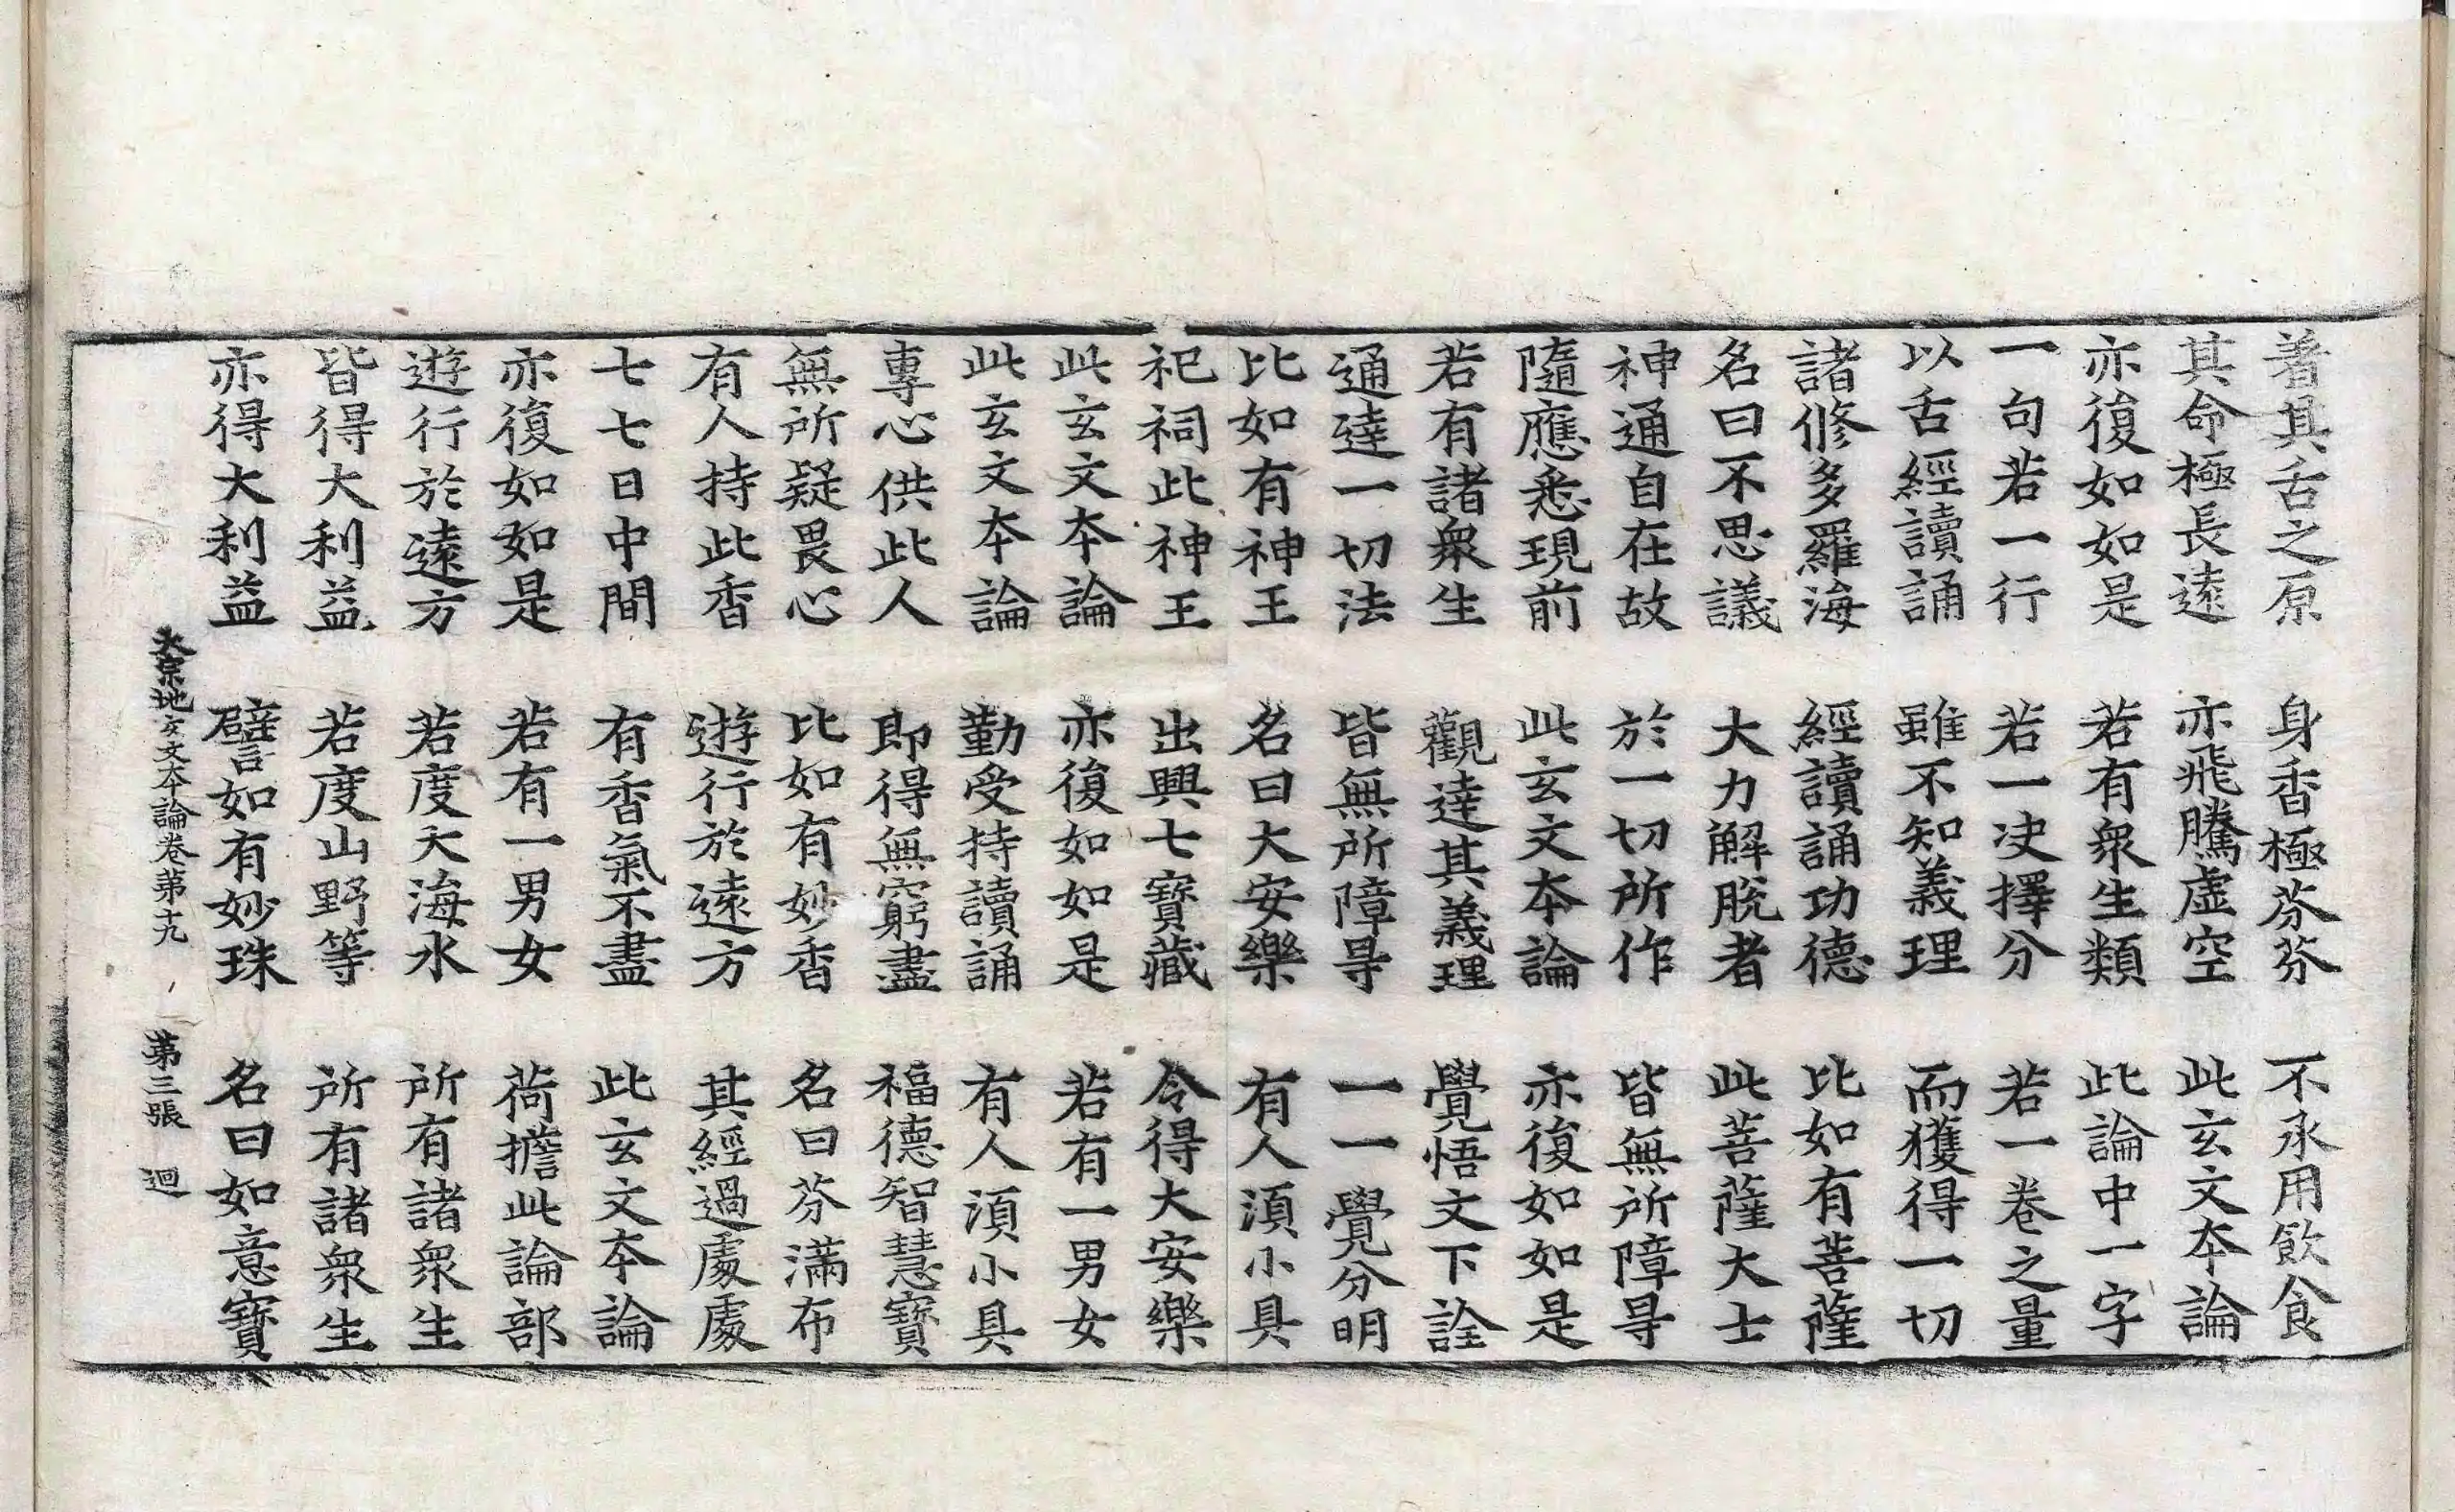 著其舌之原　身香極芬芬　不承用飲食
其命極長遠　亦飛騰虛空　此玄文夲論
亦復如如是　若有眾生類　此論中一字
一句若一行　若一决擇分　若一卷之量
以舌經讀誦　雖不知義理　而獲得一切
諸修多羅海　經讀誦功德　比如有菩薩
名曰不思議　大力解脫者　此菩薩大士
神通自在故　於一切所作　皆無所障㝵
隨應悉現前　此玄文夲論　亦復如如是
若有諸眾生　觀達其義理　覺悟文下詮
通達一切法　皆無所障㝵　一一覺分明
比如有神王　名曰大安樂　有人湏小具
祀祠此神王　出興七寶藏　令得大安樂
此玄文夲論　亦復如如是　若有一男女
此玄文夲論　勤受持讀誦　有人湏小具
專心供此人　即得無窮盡　福德智慧寶
無所疑畏心　比如有妙香　名曰芬滿布
有人持此香　遊行於遠方　其經過處處
七七日中間　有香氣不盡　此玄文夲論
亦復如如是　若有一男女　荷擔此論部
遊行於遠方　若度大海水　所有諸眾生
皆得大利益　若度山野等　所有諸眾生
亦得大利益　譬如有妙珠　名曰如意寶
大宗地玄文夲論卷第十九　第三張　迴